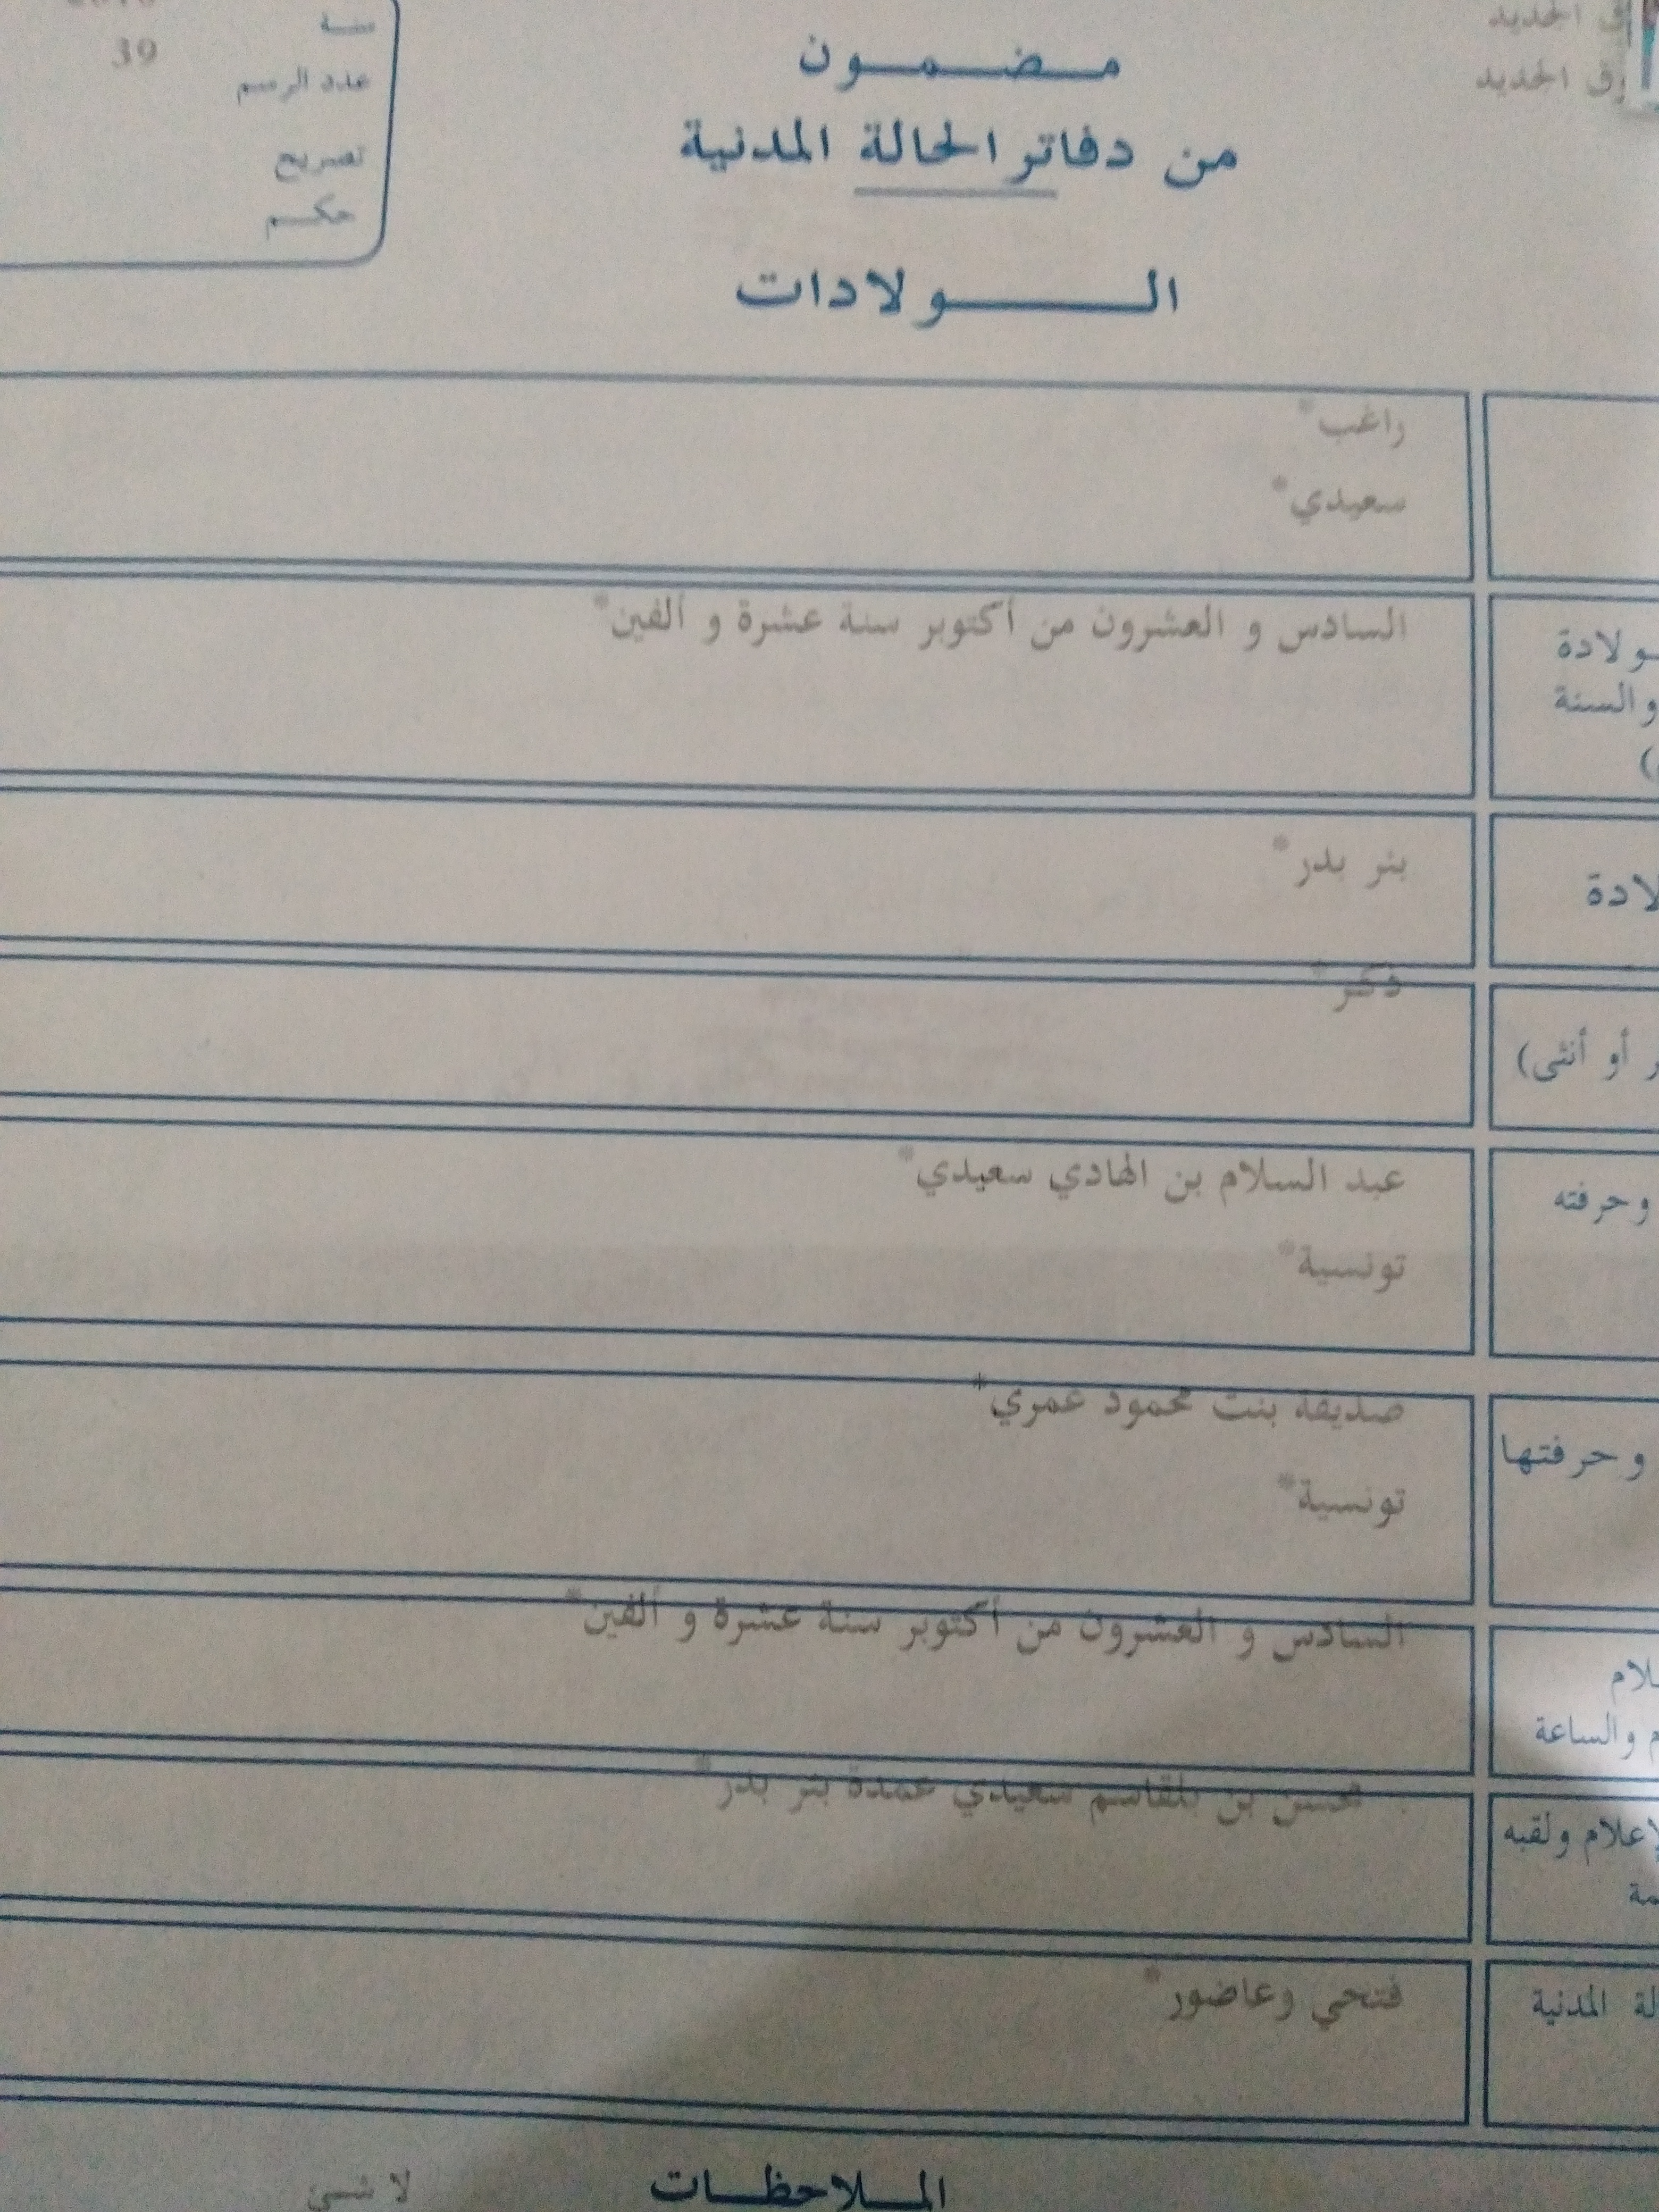 سنة
عدد الرسم 39
تصريح
حكم
مضمون
من دفاتر الحالة المدنية
الولادات
الجديد
الجديد
راغب*
سعيدي*
السادس و العشرون من أكتوبر سنة عشرة و ألفين*
والسنة
بئر بدر*
ذكر*
أو أنثى)
عبد السلام بن الهادي سعيدي*
وحرفته
تونسية*
صديقة بنت محمود عمري*
وحرفتها
تونسية*
السادس و العشرون من أكتوبر سنة عشرة و ألفين*
والساعة
محسن بن بلقاسم سعيدي عمدة بئر بدر*
ولقبه
فتحي وعاضور*
المدنية
الملاحظات
لا شيء